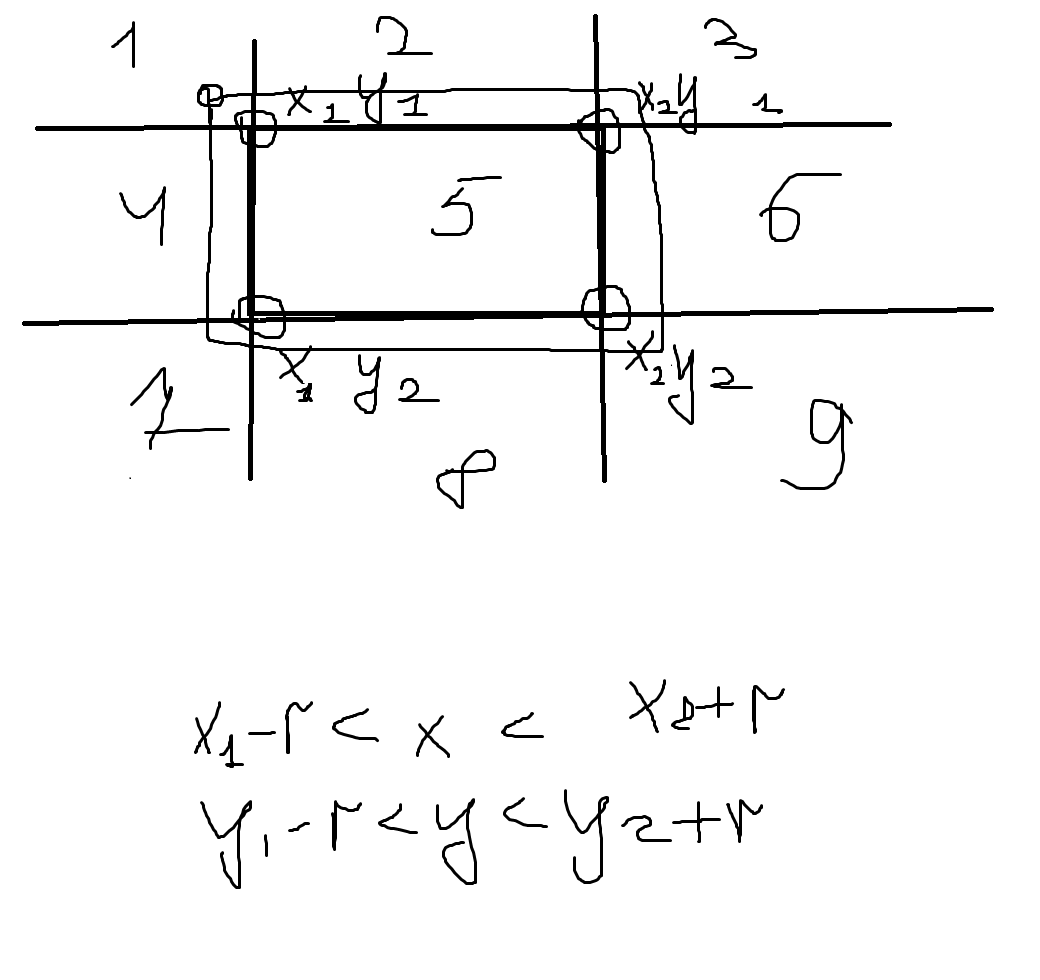 1 2 3
x1 y1 x2 y1
4 5 6
x1 y2 x2 y2
7 8 9
x1-r < x < x2+r
y1-r < y < y2+r